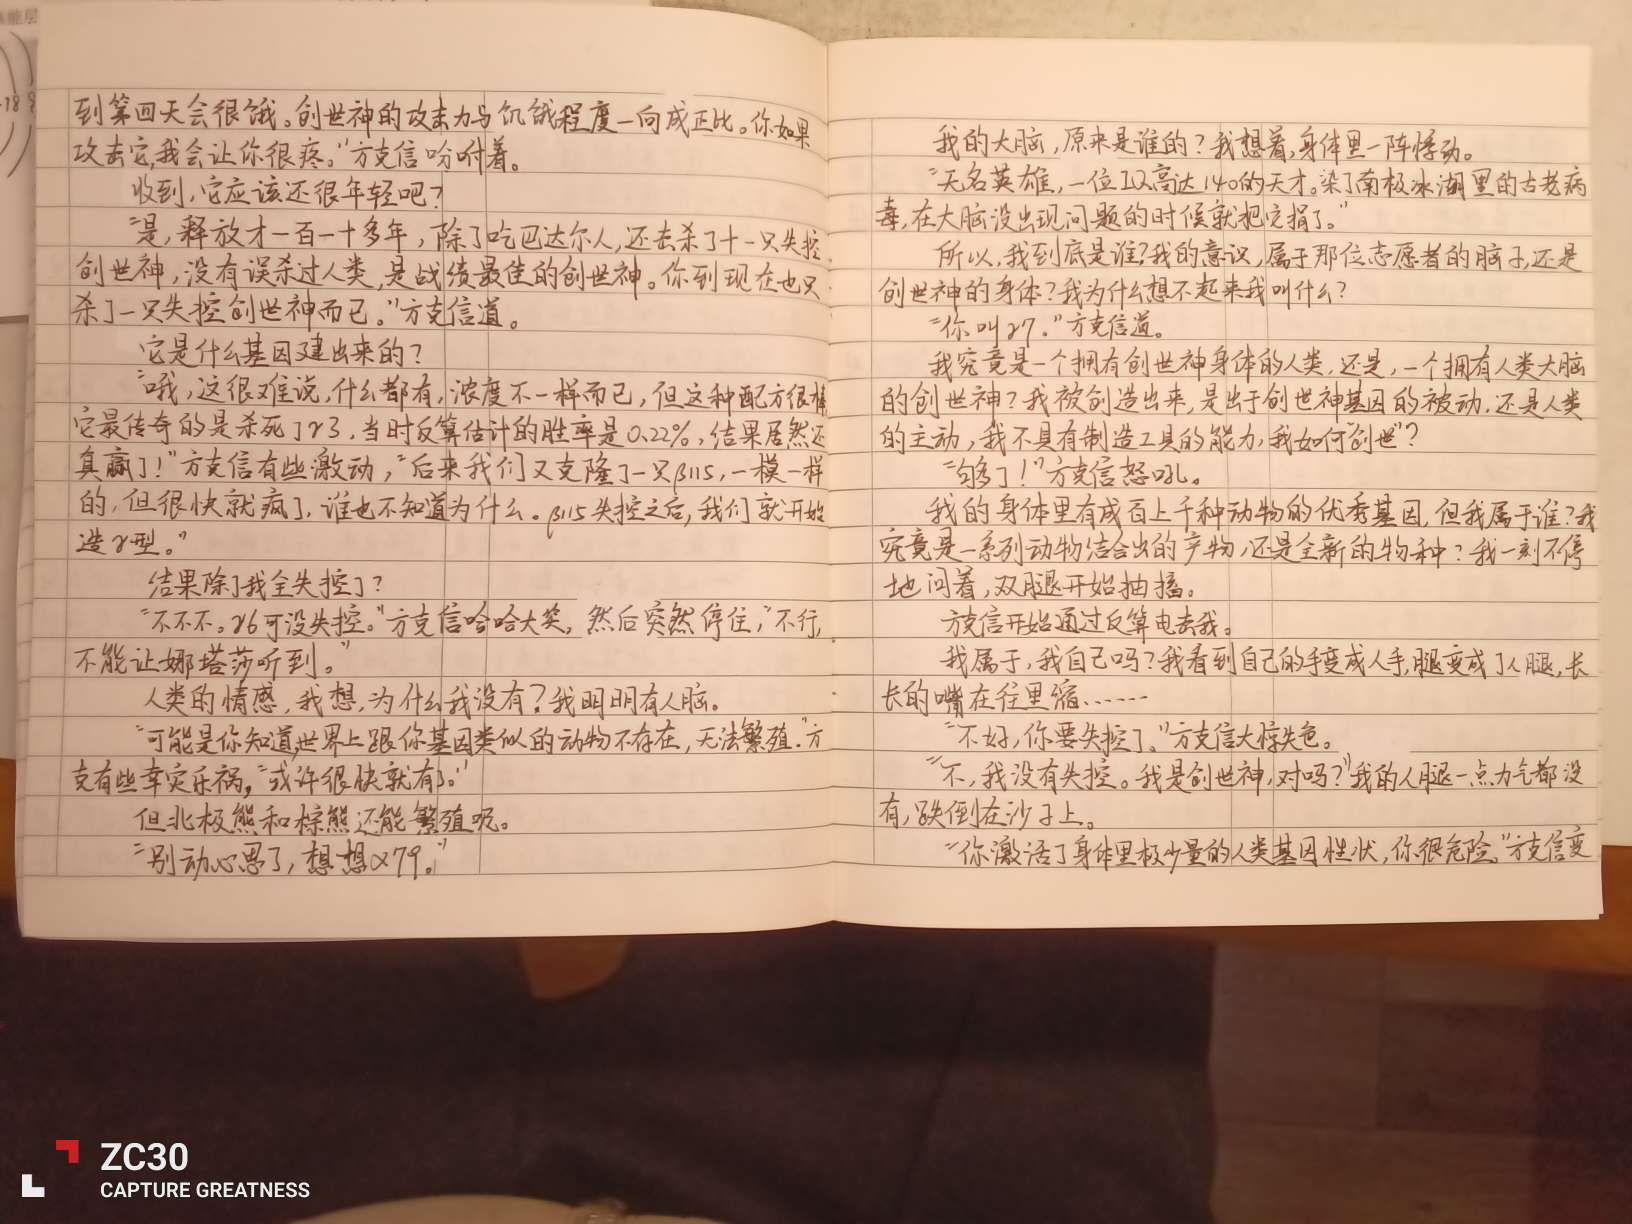 到第四天会很饿。创世神的攻击力与饥饿程度一向成正比。你如果
攻击它,我会让你很疼。”方克信吩咐着。
收到,它应该还很年轻吧?
“是,释放才一百一十多年,除了吃巴达尔人,还去杀了十一只失控
创世神,没有误杀过人类,是战绩最佳的创世神。你到现在也只
杀了一只失控创世神而已。”方克信道。
它是什么基因建出来的?
“哦,这很难说,什么都有,浓度不一样而已,但这种配方很棒
它最传奇的是杀死了γ3,当时反算估计的胜率是0.22%,结果居然还
真赢了!”方克信有些激动,“后来我们又克隆了一只β115,一模一样
的,但很快就疯了,谁也不知道为什么。β115失控之后,我们就开始
造γ型。”
结果除了我全失控了?
“不不不。γ6可没失控。”方克信哈哈大笑,然后突然停住,“不行,
不能让娜塔莎听到。”
人类的情感,我想,为什么我没有?我明明有人脑。
“可能是你知道世界上跟你基因类似的动物不存在,无法繁殖.”方
克有些幸灾乐祸,“或许很快就有了。”
但北极熊和棕熊还能繁殖呢。
“别动心思了,想想α79。”
我的大脑,原来是谁的?我想着,身体里一阵悸动。
“无名英雄,一位IQ高达140的天才。染了南极冰湖里的古老病
毒,在大脑没出现问题的时候就把它捐了。”
所以,我到底是谁?我的意识,属于那位志愿者的脑子,还是
创世神的身体?我为什么想不起来我叫什么?
“你叫γ7.”方克信道。
我究竟是一个拥有创世神身体的人类,还是,一个拥有人类大脑
的创世神?我被创造出来,是出于创世神基因的被动,还是人类
的主动,我不具有制造工具的能力,我如何“创世”?
“够了!”方克信怒吼。
我的身体里有成百上千种动物的优秀基因,但我属于谁?我
究竟是一系列动物结合出的产物,还是全新的物种?我一刻不停
地问着,双腿开始抽搐。
方克信开始通过反算电击我。
我属于,我自己吗?我看到自己的手变成人手,腿变成了人腿,长
长的嘴在往里缩……
“不好,你要失控了。”方克信大惊失色。
“不,我没有失控。我是创世神,对吗?”我的人腿一点力气都没
有,跌倒在沙子上。
“你激活了身体里极少量的人类基因性状,你很危险。”方克信变
ZC30
CAPTURE GREATNESS